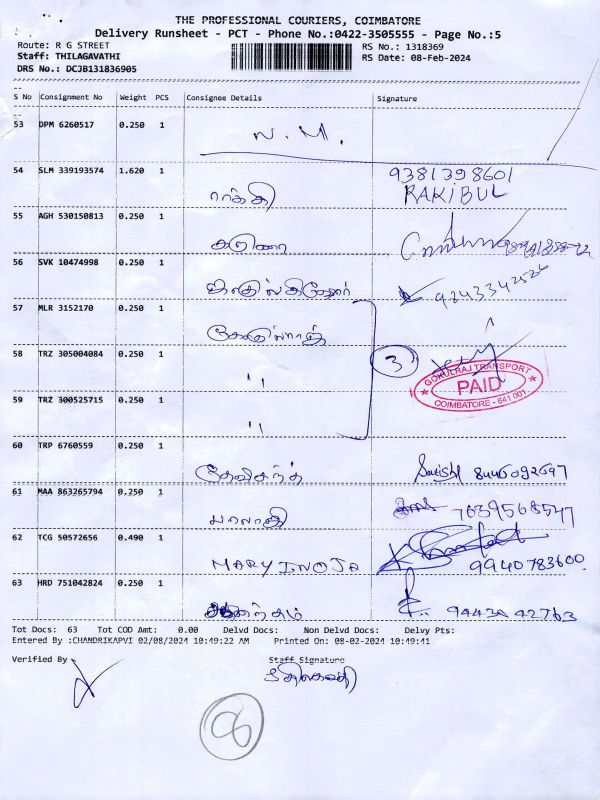 THE PROFESSIONAL COURIERS, COIMBATORE
Delivery Runsheet - PCT - Phone No.:0422-3505555 - Page No.:5
Route: R G STREET RS No.: 1318369
Staff: THILAGAVATHI RS Date: 08-Feb-2024
DRS No.: DCJB131836905
S No Consignment No Weight PCS Consignee Details Signature
53 DPM 6260517 0.250 1
N. M.
54 SLM 339193574 1.620 1 9381398601
ராக்கி RAKIBUL
55 AGH 530150813 0.250 1
56 SVK 10474998 0.250 1
9243342526
57 MLR 3152170 0.250 1
கோகுல்ராஜ்
58 TRZ 305004084 0.250 1 3
"
GOKULRAJ TRANSPORT
PAID
COIMBATORE - 641 001
59 TRZ 300525715 0.250 1
"
60 TRP 6760559 0.250 1
தேவிசந்த் Satish 8446092697
61 MAA 863265794 0.250 1
பாலாஜி 7639568547
62 TCG 50572656 0.490 1
MARY INOJA 9940783600
63 HRD 751042824 0.250 1
9443A42763
Tot Docs: 63 Tot COD Amt: 0.00 Delvd Docs: Non Delvd Docs: Delvy Pts:
Entered By :CHANDRIKAPVI 02/08/2024 10:49:22 AM Printed On: 08-02-2024 10:49:41
Verified By Staff Signature
8